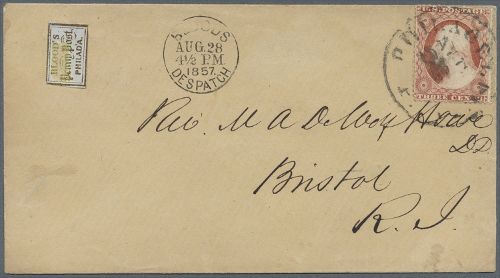 BLOOD'S
Penny Post,
PHILADA.
BLOODS
AUG. 28
4½ P.M.
1857.
DESPATCH
U.S. POSTAGE
THREE CENTS
Rev. M A DeWolf Howe
DD
Bristol
R. I.